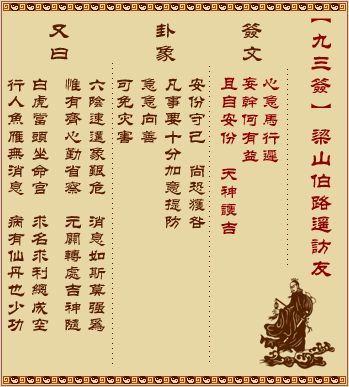 【九三簽】 梁山伯路遙訪友
簽文
心急馬行遲
妄幹何有益
且自安份 天神護吉
卦象
安份守己 尚恐獲咎
凡事要十分加意提防
急急向善
可免灾害
又曰
六陰速漢蒙艱危 消息如斯莫強爲
惟有齊心勤省察 元關轉處吉神隨
白虎當頭坐命宮 求名求利總成空
行人魚雁無消息 病有仙丹也少功